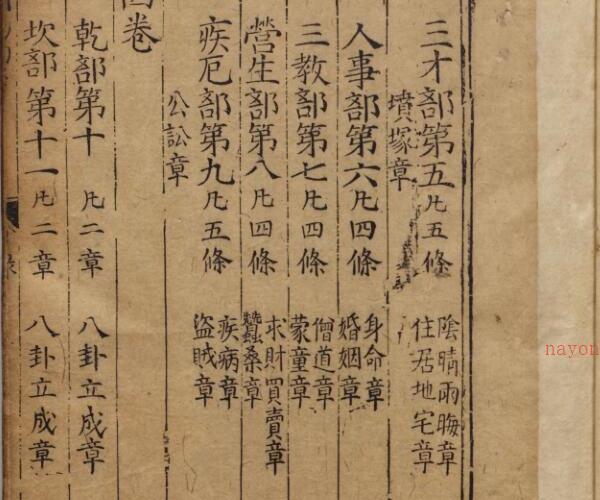 三才部第五凡五條 陰晴雨晦章 住居地宅章
墳塚章
人事部第六凡四條 身命章 婚姻章
三教部第七凡四條 僧道章 蒙童章
營生部第八凡四條 求財買賣章 蠶桑章
疾厄部第九凡五條 疾病章 盜賊章
公訟章
四卷
乾部第十 凡二章 八卦立成章
坎部第十一凡二章 八卦立成章
nayon